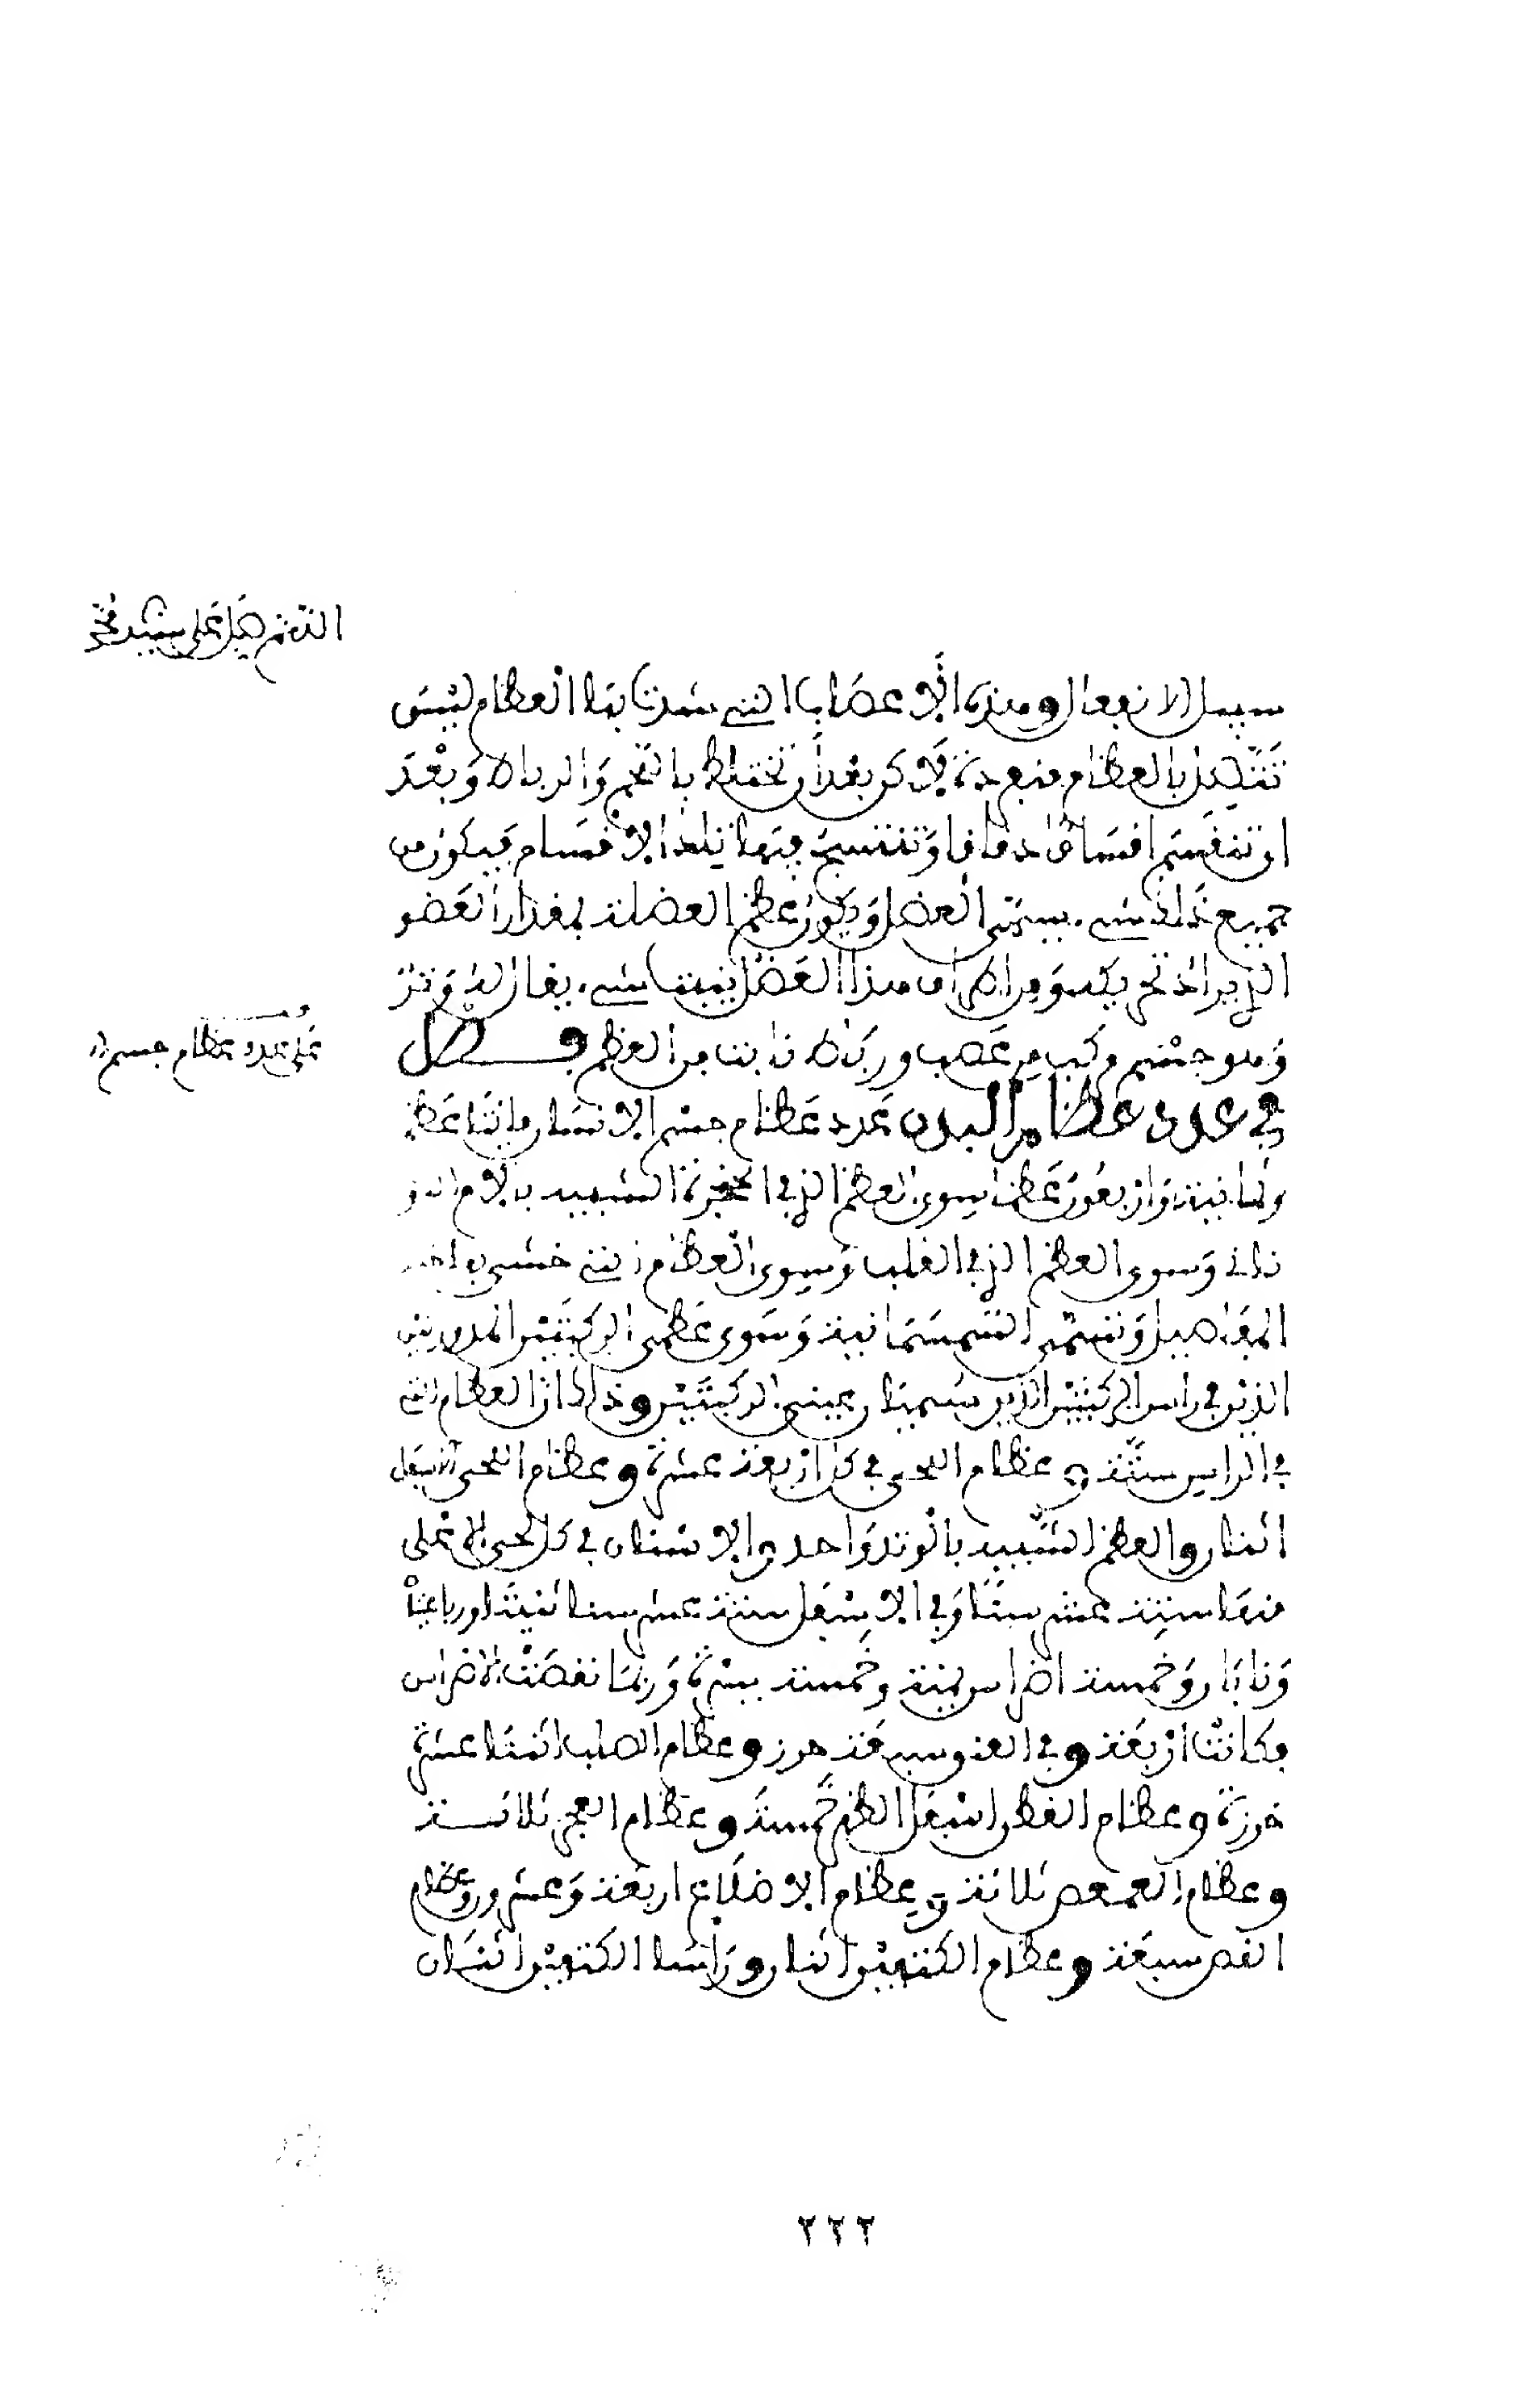 اللهم صل على سيدنا محمد
سبيل الانفعال وهذه الاعصاب التي شدت بها العظام ليس
تتصل بالعظام منفردة لاكن بعد أن تختلط باللحم والرباط وبعد
ان تنقسم اقساما دقاقا وتنتسج فيها تلك الاقسام فيكون من
جميع ذلك شيء يسمى العضل ويكون عظم العضلة بمقدار العضو
الذي يراد تحريكه ومن اطراف هذا العضل ينبت شيء يقال له وتر
وهو جسم مركب من عصب ورباط نابت من العظم فصل
على عدد عظام جسم
في عدد عظام البدن عدد عظام جسم الانسان مائتا عظم
وثمانية واربعون عظما سوى العظم الذي في الحنجرة الشبيه بلام
وسوى العظم الذي في القلب وسوى العظام التي حشي بها خلل
المفاصل وتسمى السمسمانية وسوى عظمي الركبتين المدورين
الذين في راس الركبتين الذين يسميان عيني الركبتين وذلك ان العظام التي
في الراس ستة وعظام اللحي في كل اربعة عشرة وعظام اللحي الاسفل
اثنان والعظم الشبيه بالوتد واحد والاسنان في كل لحي الاعلى
منها ستة عشر سنا وفي الاسفل ستة عشر سنا ثنيتان ورباعيتان
ونابان وخمسة اضراس يمنة وخمسة يسرة وربما نقصت الاضراس
فكانت اربعة وفي العنق سبعة خرز وعظام الصلب اثنتا عشرة
خرزة وعظام القطن اسفل الظهر خمسة وعظام العجز ثلاثة
وعظام العصعص ثلاثة وعظام الاضلاع اربعة وعشرون وعظام
القص سبعة وعظام الكتفين اثنان وراسا الكتفين اثنان
٢٢٢